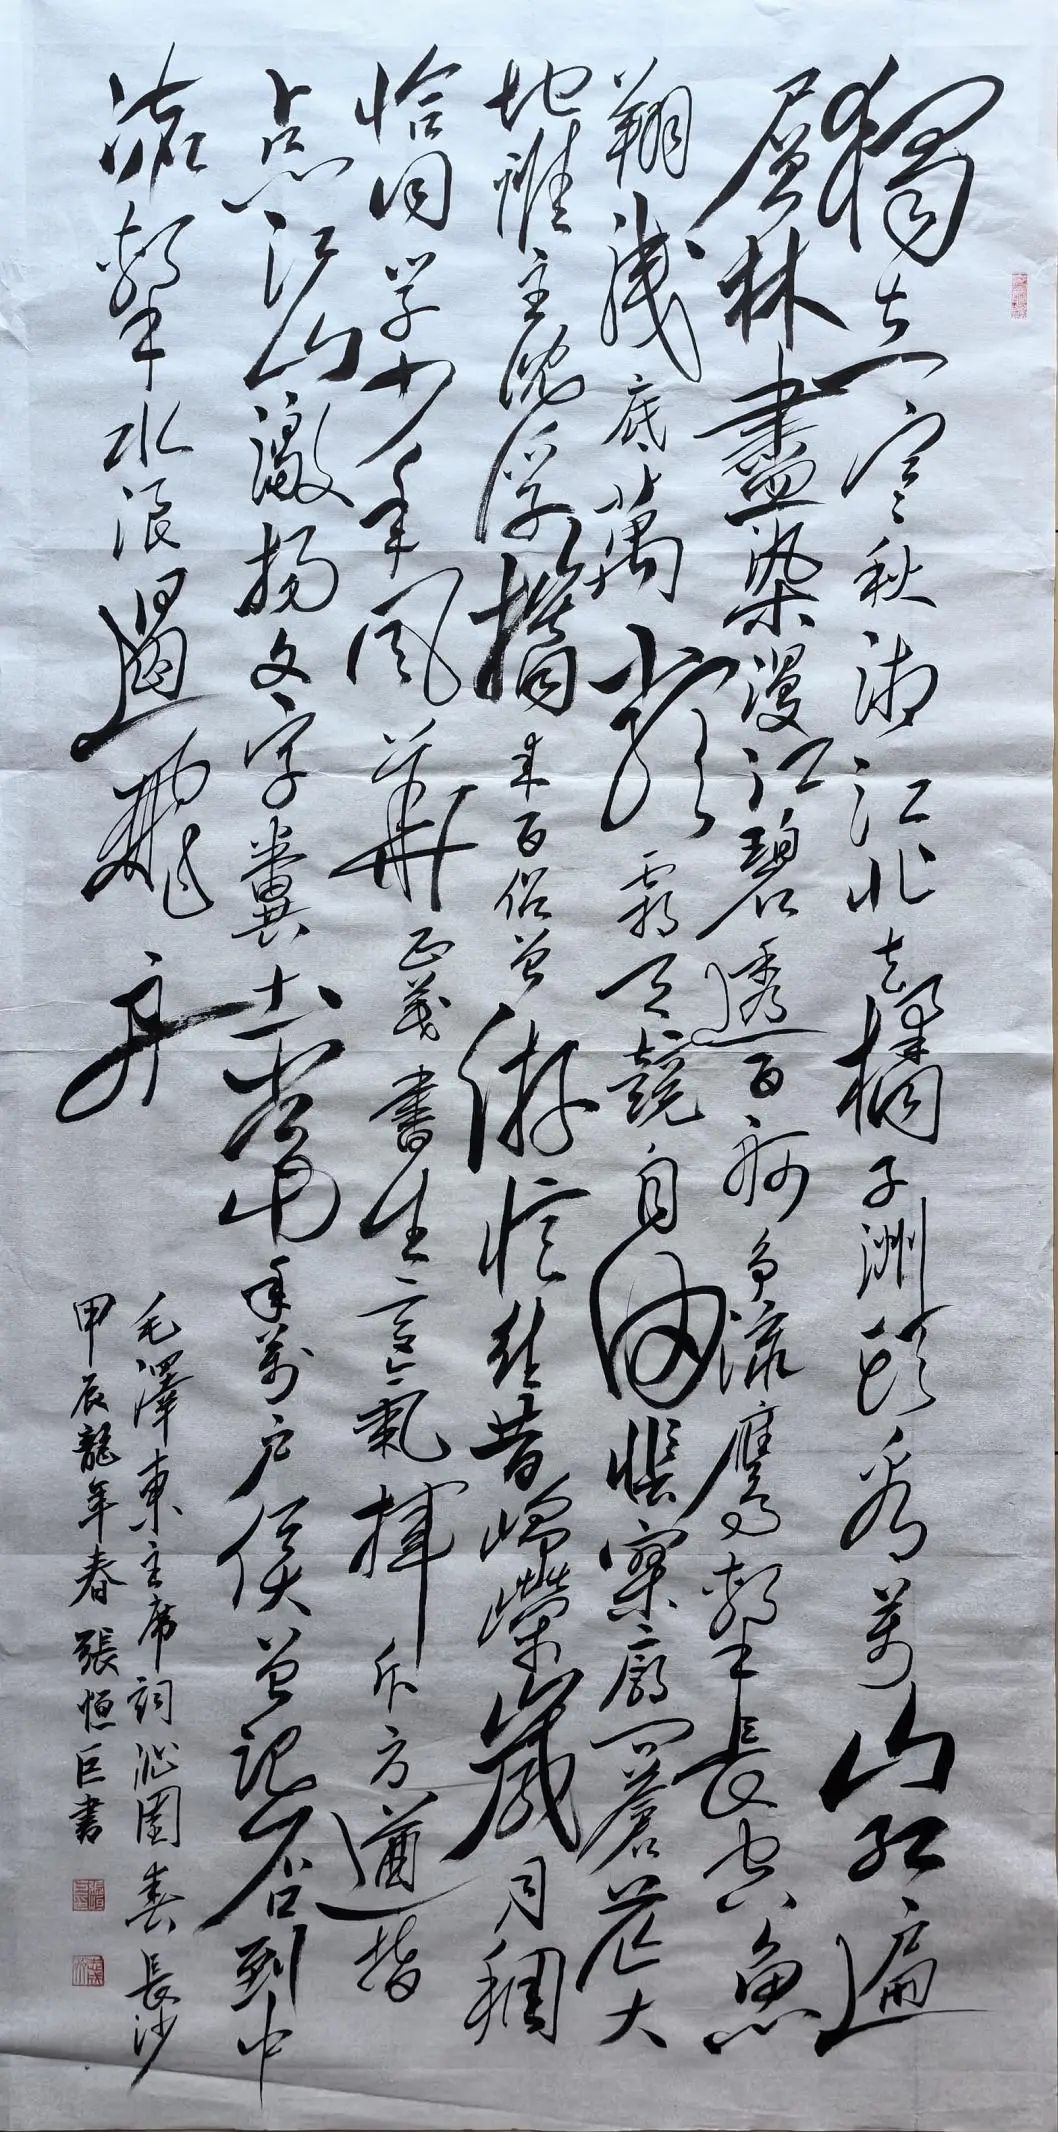 獨立寒秋湘江北去橘子洲頭看萬山紅遍
層林盡染漫江碧透百舸争流鷹擊長空魚
翔淺底萬類霜天競自由悵寥廓問蒼茫大
地誰主沈浮攜来百侣曾游憶往昔崢嶸歲月稠
恰同學少年風華正茂書生意氣揮斥方遒指
点江山激揚文字糞土當年萬户侯曾記否到中
流擊水浪遏飛舟
毛澤東主席詞沁園春長沙
甲辰龍年春張恒巨書